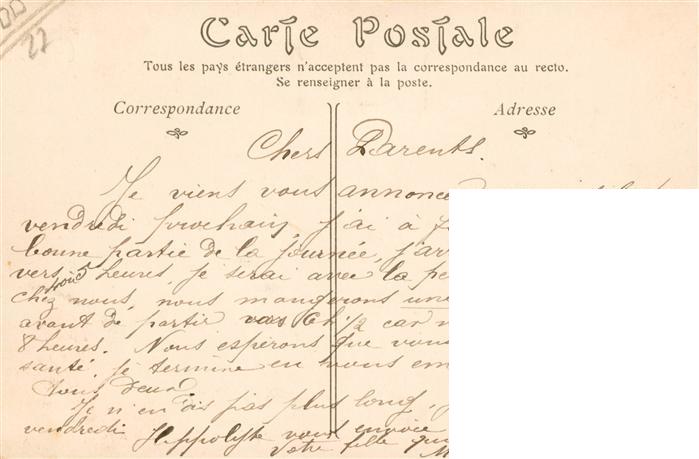 27
Carte Postale
Tous les pays étrangers n'acceptent pas la correspondance au recto.
Se renseigner à la poste.
Correspondance
Adresse
Chers Parents.
Je viens vous
vendredi prochain, j'ai à
bonne partie de la journée,
vers 5 heures, je serai avec la
chez nous, nous mangerons une
avant de partir vers 6h 1/2 car
8 heures. Nous espérons que vous
santé, je termine en vous
tous deux
Je n'en dis pas plus long,
vendredi Hippolyte vous envoie
Votre fille qui